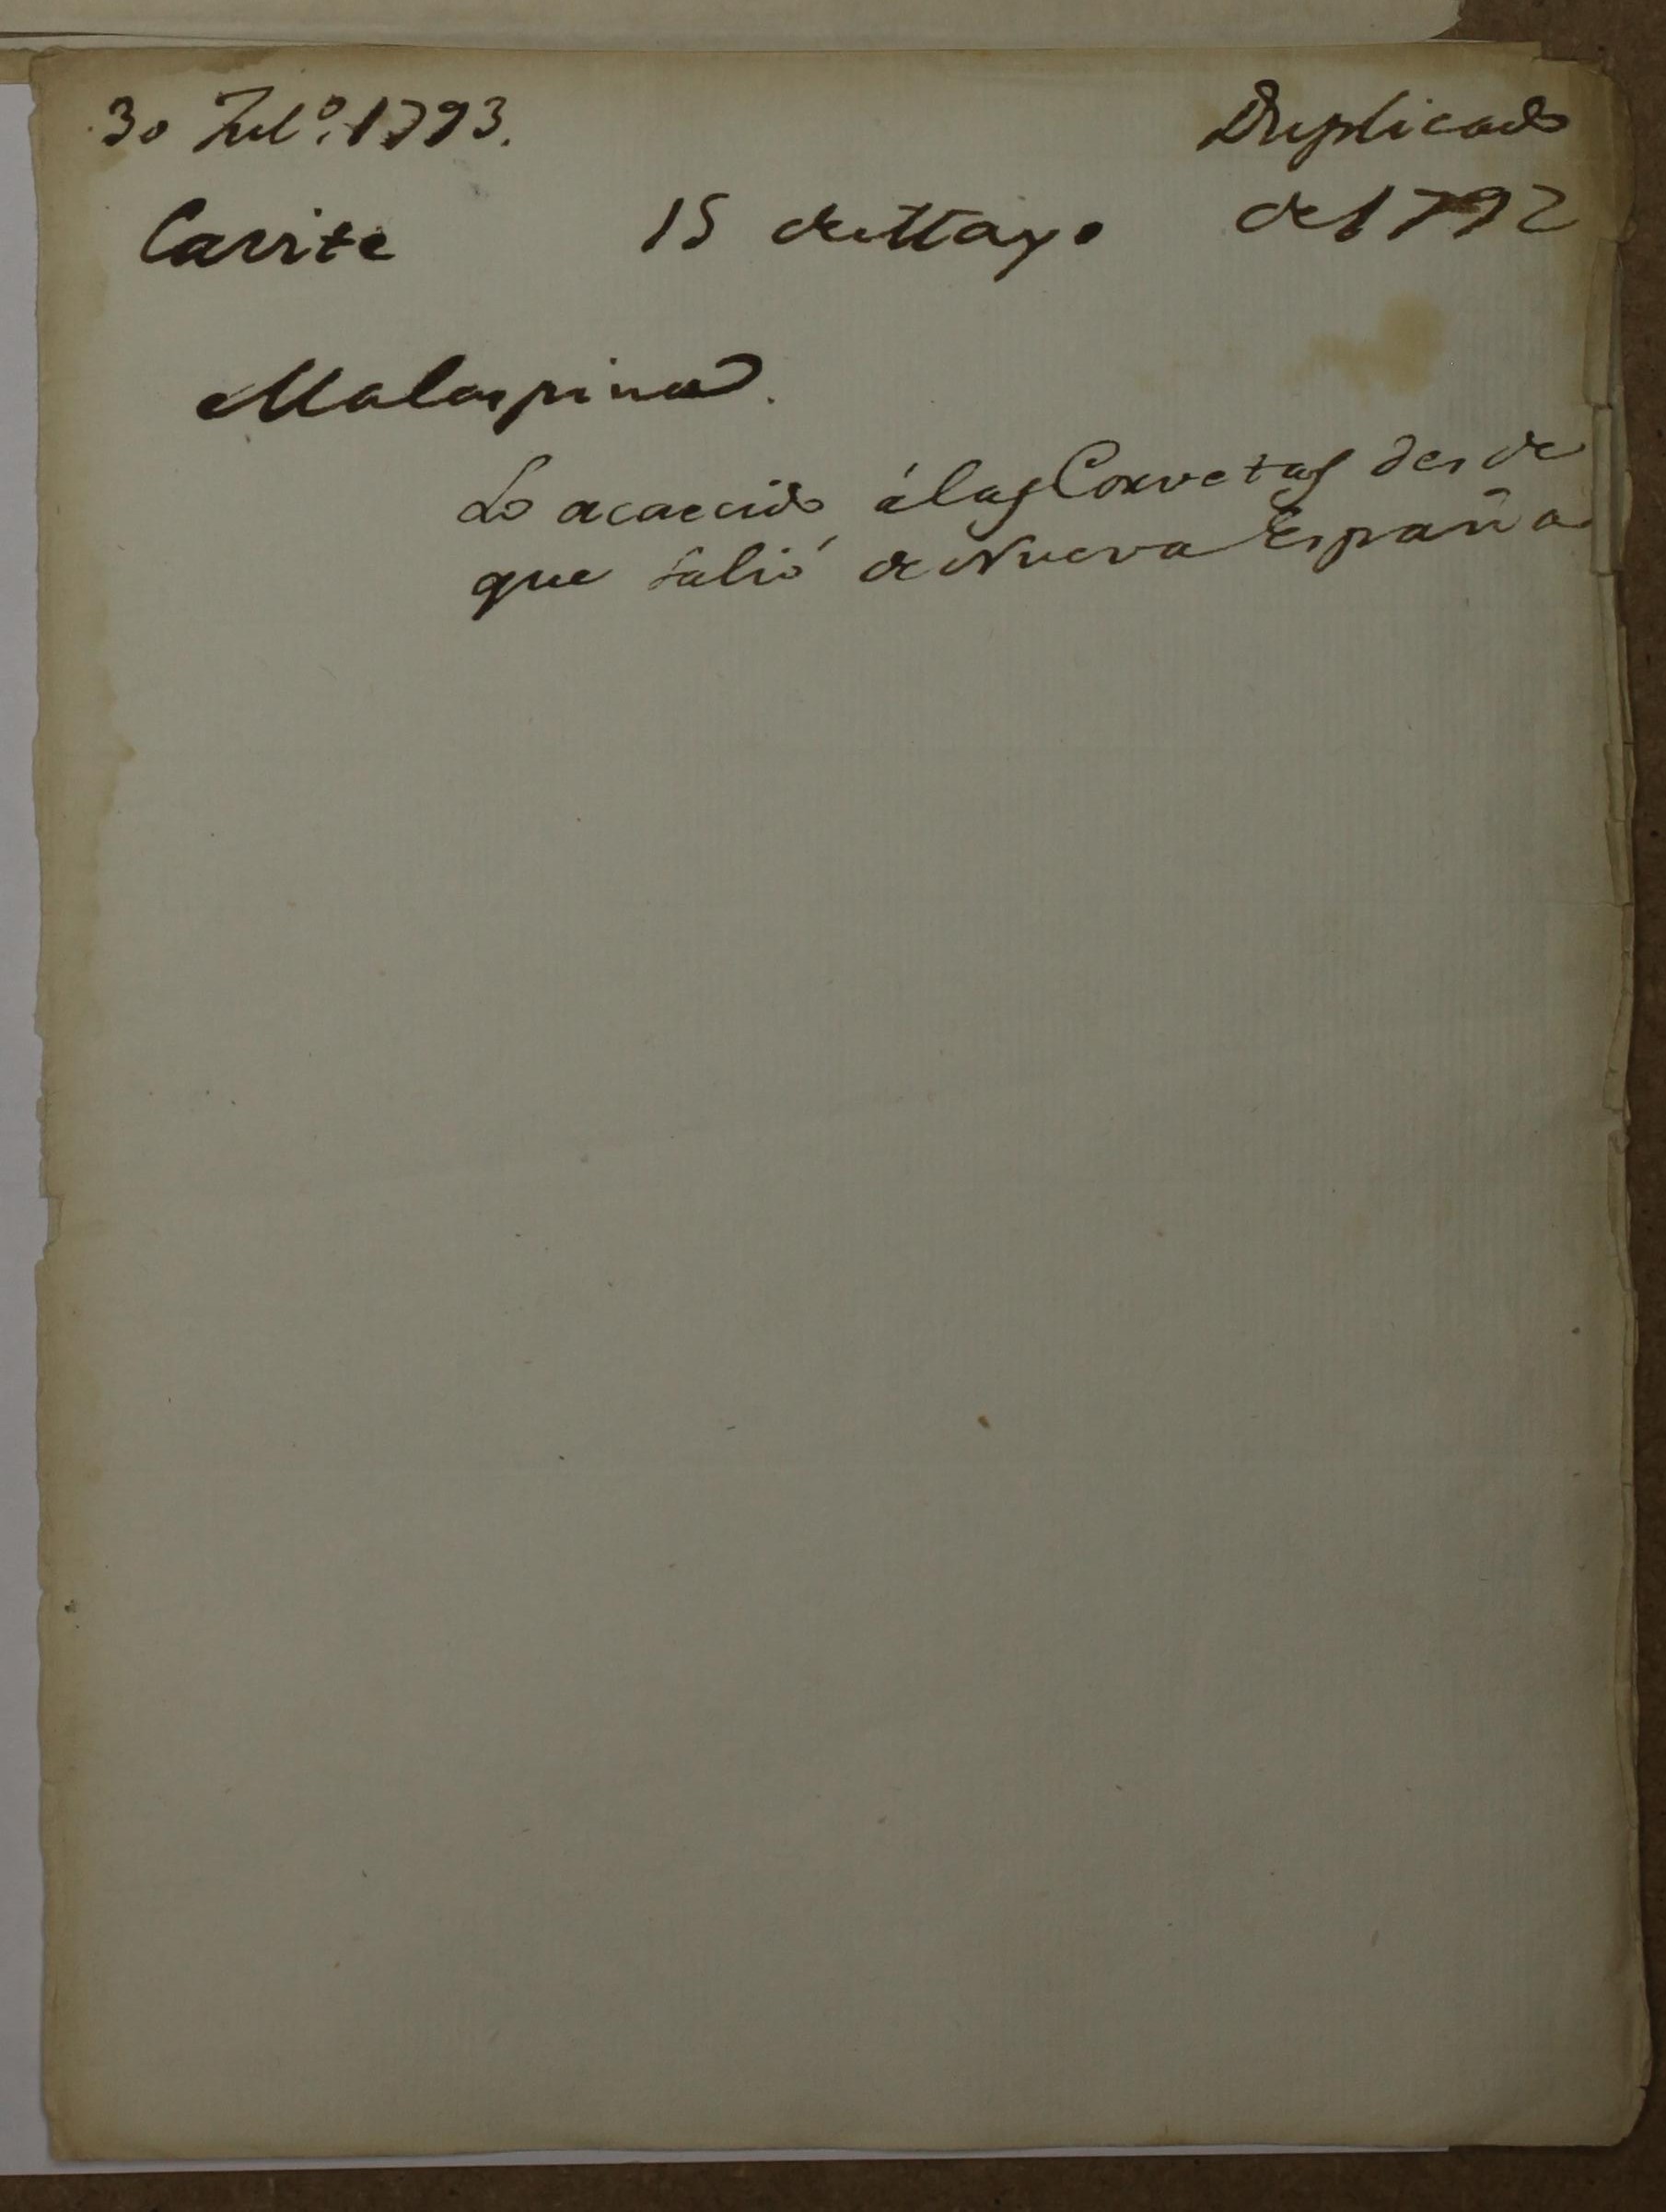 30 Jul.º 1793. Duplicado
Cavite 15 de Mayo de 1792
Malaspina.
Lo acaecido á las Corvetas desde
que salió de Nueva España